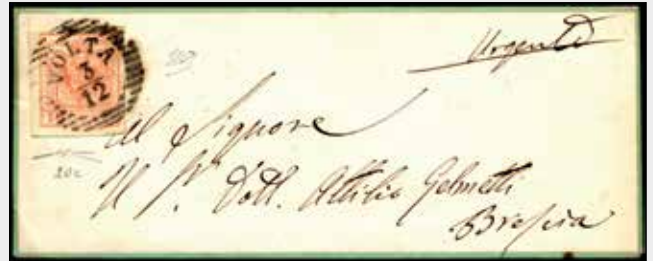 VOLTA
3/12
Urgente
Al Signore
Il Sr. Dott. Attilio Gelmetti
Brescia